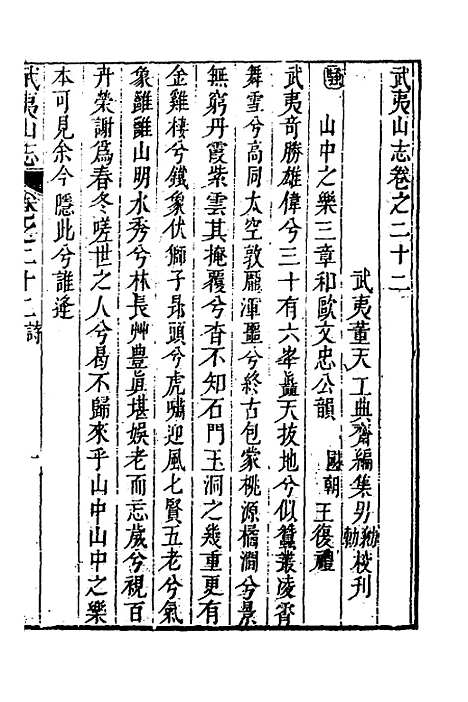 武夷山志卷之二十二
武夷董天工典齋編集男 校刊
騷 山中之樂三章和歐文忠公韻 國朝王復禮
武夷奇勝雄偉兮三十有六峯矗天拔地兮似蠶叢凌霄
舞雪兮高同太空敦龐渾噩兮終古包蒙桃源橘澗兮景
無窮丹霞紫雲其掩覆兮杳不知石門玉洞之幾重更有
金雞棲兮鐵象伏獅子昂頭兮虎嘯迎風七賢五老兮氣
象雝雝山明水秀兮林長艸豊眞堪娛老而忘歲兮視百
卉榮謝爲春冬嗟世之人兮曷不歸來乎山中山中之樂
本可見余今隱此兮誰逢
武夷山志 卷之二十二 詩 一